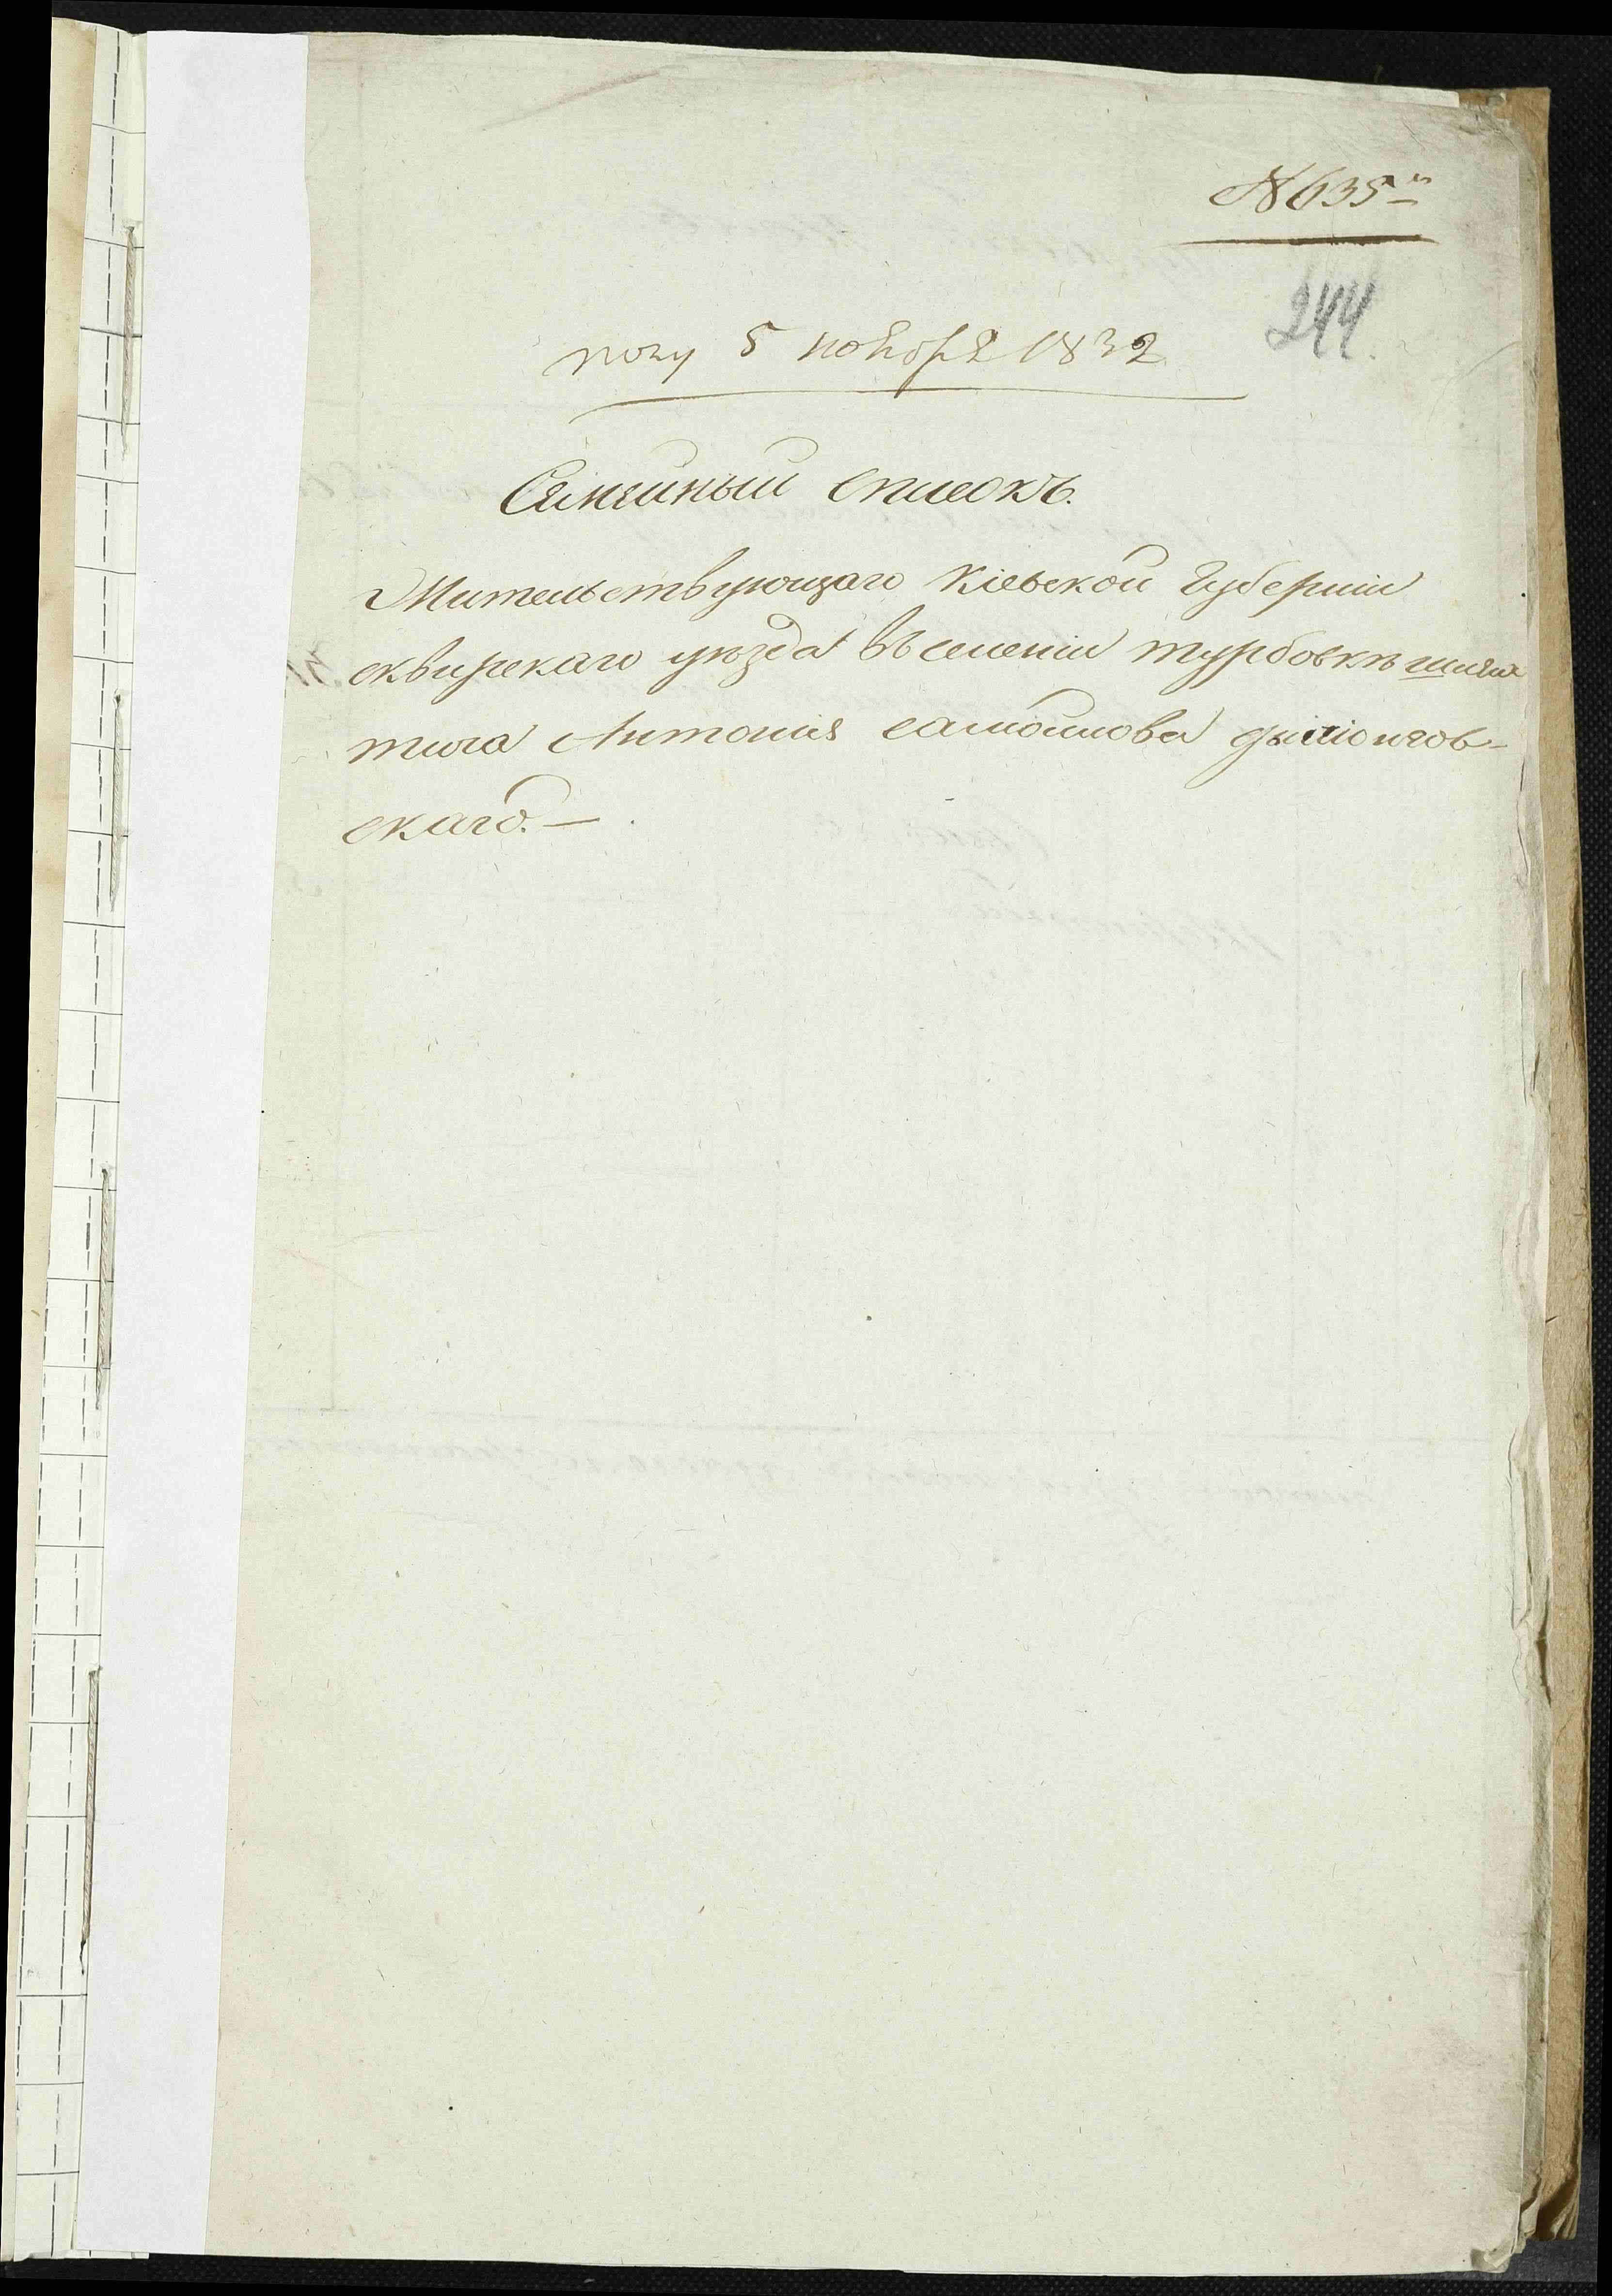 № 635й
244.
полу 5 ноября 1832
Семейный списокъ.
Жительствующаго Кіевской Губерніи
сквирскаго уезда въ селеніи турбовкѣ шлях
тича Антонія самойлова
скаго. —